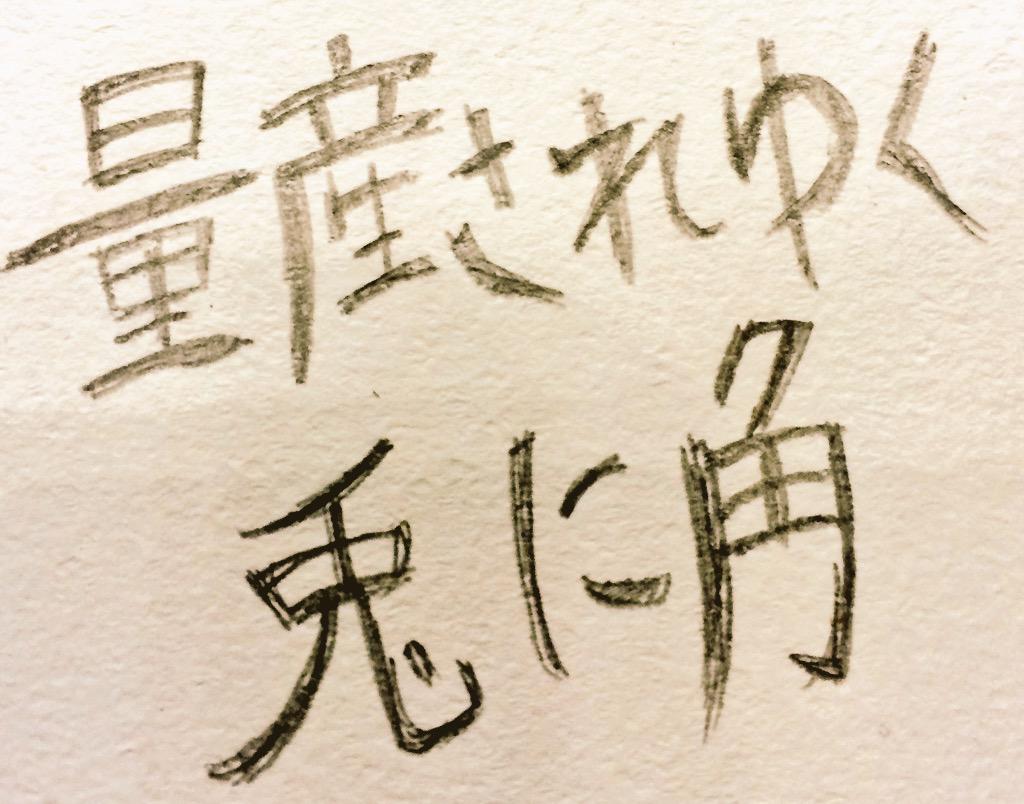 量産されゆく
兎に角